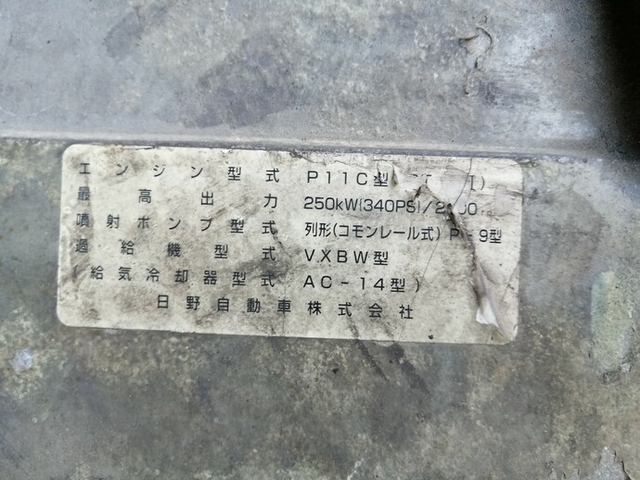 エンジン型式 P11C型 I)
最高出力 250kW(340PS)/2
噴射ポンプ型式 列形(コモンレール式) P 9型
過給機型式 VXBW型
(給気冷却器型式 AC-14型)
日野自動車株式会社